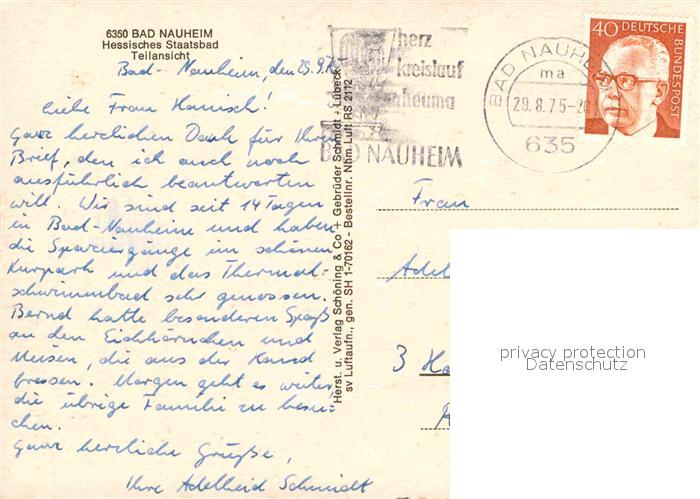 6350 BAD NAUHEIM
Hessisches Staatsbad
Teilansicht
Bad-Nauheim, den 29.9.
Liebe Frau Hanisch!
Ganz herzlichen Dank für Ihren
Brief, den ich auch noch
ausführlich beantworten
will. Wir sind seit 14 Tagen
in Bad-Nauheim und haben
die Spaziergänge im schönen
Kurpark und das Thermal-
schwimmbad sehr genossen.
Bernd hatte besonderen Spaß
an den Eichhörnchen und
Meisen, die aus der Hand
fressen. Morgen geht es weiter,
die übrige Familie zu besu-
chen.
Ganz herzliche Grüße,
Ihre Adelheid Schmidt
Herst. u. Verlag Schöning & Co + Gebrüder Schmidt - Lübeck
sv Luftaufn., gen. SH 1-70162 - Bestellnr. Nhm. Luft RS 2112
herz
kreislauf
rheuma
BAD NAUHEIM
BAD NAUHEIM
ma
29.8.75-20
635
40 DEUTSCHE
BUNDESPOST
Frau
3 Ha
privacy protection
Datenschutz